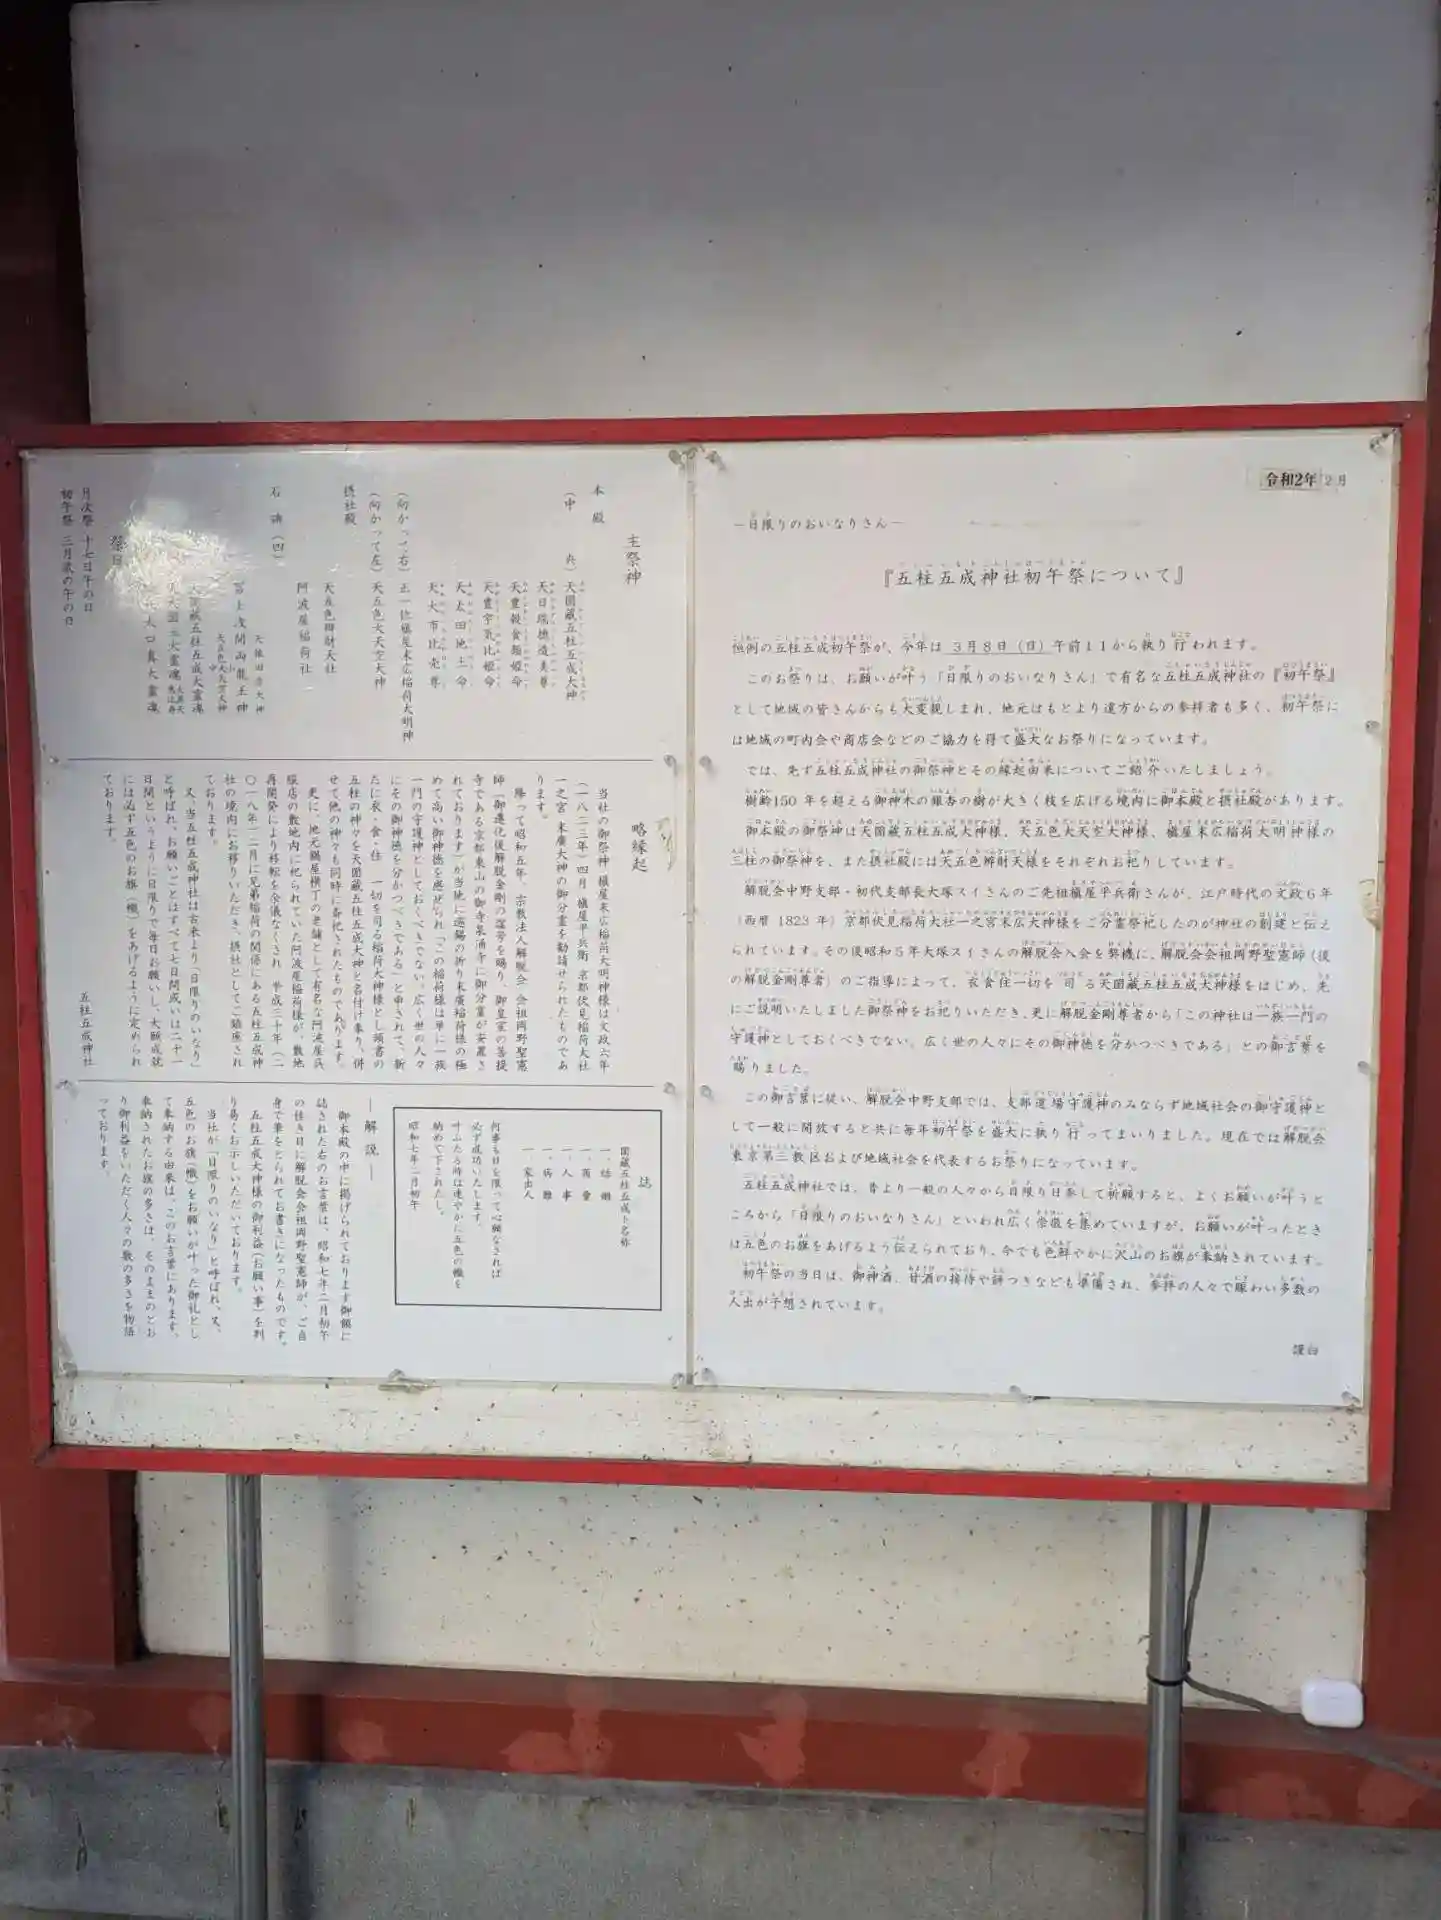 令和2年 2月
―日限りのおいなりさん―
『五柱五成神社初午祭について』
恒例の五柱五成初午祭が、今年は 3月8日(日)午前11から執り行われます。
このお祭りは、お願いが叶う「日限りのおいなりさん」で有名な五柱五成神社の『初午祭』
として地域の皆さんからも大変親しまれ、地元はもとより遠方からの参拝者も多く、初午祭に
は地域の町内会や商店会などのご協力を得て盛大なお祭りになっています。
では、先ず五柱五成神社の御祭神とその縁起由来についてご紹介いたしましょう。
樹齢150年を超える御神木の銀杏の樹が大きく枝を広げる境内に御本殿と摂社殿があります。
御本殿の御祭神は天圀蔵五柱五成大神様、天五色大天空大神様、槌屋末広稲荷大明神様の
三柱の御祭神を、また摂社殿には天五色辨財天様をそれぞれお祀りしています。
解脱会中野支部・初代支部長大塚スイさんのご先祖槌屋平兵衛さんが、江戸時代の文政6年
(西暦 1823年)京都伏見稲荷大社一之宮末広大神様をご分霊祭祀したのが神社の創建と伝え
られています。その後昭和5年大塚スイさんの解脱会入会を契機に、解脱会会祖岡野聖憲師(後
の解脱金剛尊者)のご指導によって、衣食住一切を司る天圀蔵五柱五成大神様をはじめ、先
にご説明いたしました御祭神をお祀りいただき、更に解脱金剛尊者から「この神社は一族一門の
守護神としておくべきでない。広く世の人々にその御神徳を分かつべきである」との御言葉を
賜りました。
この御言葉に従い、解脱会中野支部では、支部道場守護神のみならず地域社会の御守護神と
して一般に開放すると共に毎年初午祭を盛大に執り行ってまいりました。現在では解脱会
東京第三教区および地域社会を代表するお祭りになっています。
五柱五成神社では、昔より一般の人々から日限り日参して祈願すると、よくお願いが叶うと
ころから「日限りのおいなりさん」といわれ広く崇敬を集めていますが、お願いが叶ったとき
は五色のお旗をあげるよう伝えられており、今でも色鮮やかに沢山のお旗が奉納されています。
初午祭の当日は、御神酒、甘酒の接待や餅つきなども準備され、参拝の人々で賑わい多数の
人出が予想されています。
謹白
主祭神
本殿
(中 央) 天圀蔵五柱五成大神
天日瑞穂造美尊
天豊穀食麺姫命
天豊宇気比姫命
天太田地主命
天大市比売尊
(向かって右) 正一位槌屋末広稲荷大明神
(向かって左) 天五色大天空大神
摂社殿 天五色辨財天社
阿波屋稲荷社
石 (四)
富士浅間両龍王神
天五色大天空大神
圀蔵五柱五成大霊魂
祭日
月次祭 十七日午の日
初午祭 三月歳の午の日
略縁起
当社の御祭神 槌屋末広稲荷大明神様は文政六年
(一八二三年)四月 槌屋平兵衛 京都伏見稲荷大社
一之宮 末廣大神の御分霊を勧請せられたものであ
ります。
降って昭和五年、宗教法人解脱会 会祖岡野聖憲
師(御遷化後解脱金剛の諡号を賜り、御皇室の菩提
寺である京都東山の御寺泉涌寺に御分霊が安置さ
れております)が当地に巡錫の折り末廣稲荷様の極
めて高い御神徳を感ぜられ「この稲荷様は単に一族
一門の守護神としておくべきでない。広く世の人々
にその御神徳を分かつべきである」と申されて、新
たに衣・食・住 一切を司る稲荷大神様とし頭書の
五柱の神々を天圀蔵五柱五成大神と名付け奉り、併
せて他の神々も同時に斎祀されたものであります。
更に、地元鍋屋横丁の老舗として有名な阿波屋呉
服店の敷地内に祀られていた阿波屋稲荷様が、敷地
再開発により移転を余儀なくされ 平成三十年(二
〇一八年)二月に兄弟稲荷の関係にある五柱五成神
社の境内にお移りいただき、摂社としてご鎮座され
ております。
又、当五柱五成神社は古来より「日限りのいなり」
と呼ばれ、お願いごとはすべて七日間或いは二十一
日間というように日限りで毎日お願いし、大願成就
には必ず五色のお旗(幟)をあげるように定められ
ております。
五柱五成神社
誌
圀蔵五柱五成ト名称
一、結婚
一、商業
一、人事
一、病難
一、家出人
何事も日を限って心願なされば
必ず成功いたします。
叶ふたる時は速やかに五色の幟を
納めて下されたし。
昭和七年二月初午
―解説―
御本殿の中に掲げられております御額に
誌された右のお言葉は、昭和七年二月初午
の佳き日に解脱会会祖岡野聖憲師が、ご自
身で筆をとられてお書きになったものです。
五柱五成大神様の御利益(お願い事)を判
り易くお示しいただいております。
当社が「日限りのいなり」と呼ばれ、又、
五色のお旗(幟)をお願いが叶った御礼とし
て奉納する由来は、このお言葉にあります。
奉納されたお旗の多さは、そのままこのお
り御利益をいただく人々の数の多さを物語
っております。